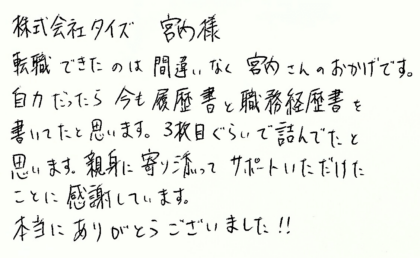 株式会社タイズ 宮内様
転職できたのは間違いなく宮内さんのおかげです。
自力だったら今も履歴書と職務経歴書を
書いてたと思います。3枚目ぐらいで詰んでたと
思います。親身に寄り添ってサポートいただけた
ことに感謝しています。
本当にありがとうございました!!